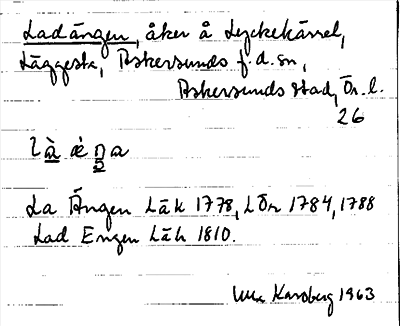 Ladängen, åker å Lyckekärret,
Läggesta, Askersunds f.d. sn,
Askersunds stad, Ör. l.
26
La Ängen LäK 1778, LÖr 1784, 1788
Lad Engen Läh 1810.
Karsberg 1963